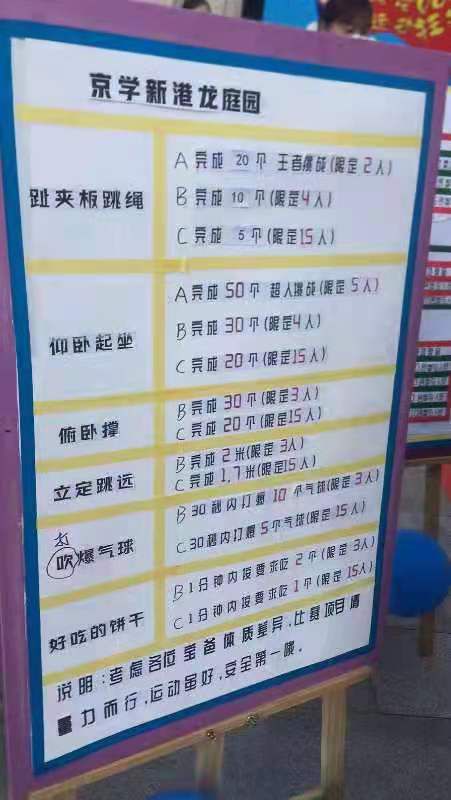 京学新港龙庭园
趾夹板跳绳
A 完成 20 个 王者挑战(限定 2人)
B 完成 10 个(限定4人)
C 完成 5 个(限定15人)
仰卧起坐
A 完成 50 个 超人挑战(限定 5人)
B 完成 30 个(限定4人)
C 完成 20 个(限定15人)
俯卧撑
B 完成 30 个(限定3人)
C 完成 20 个(限定15人)
立定跳远
B 完成 2 米(限定 3人)
C 完成 1.7 米(限定15人)
打
吹爆气球
B 30 秒内打爆 10 个气球(限定 3人)
C 30秒内打爆 5个气球(限定 15人)
好吃的饼干
B 1分钟内按要求吃 2个(限定 3人)
C 1分钟内按要求吃 1个(限定 15人)
说明:考虑各位宝爸体质差异,比赛项目请
量力而行,运动虽好,安全第一哦。